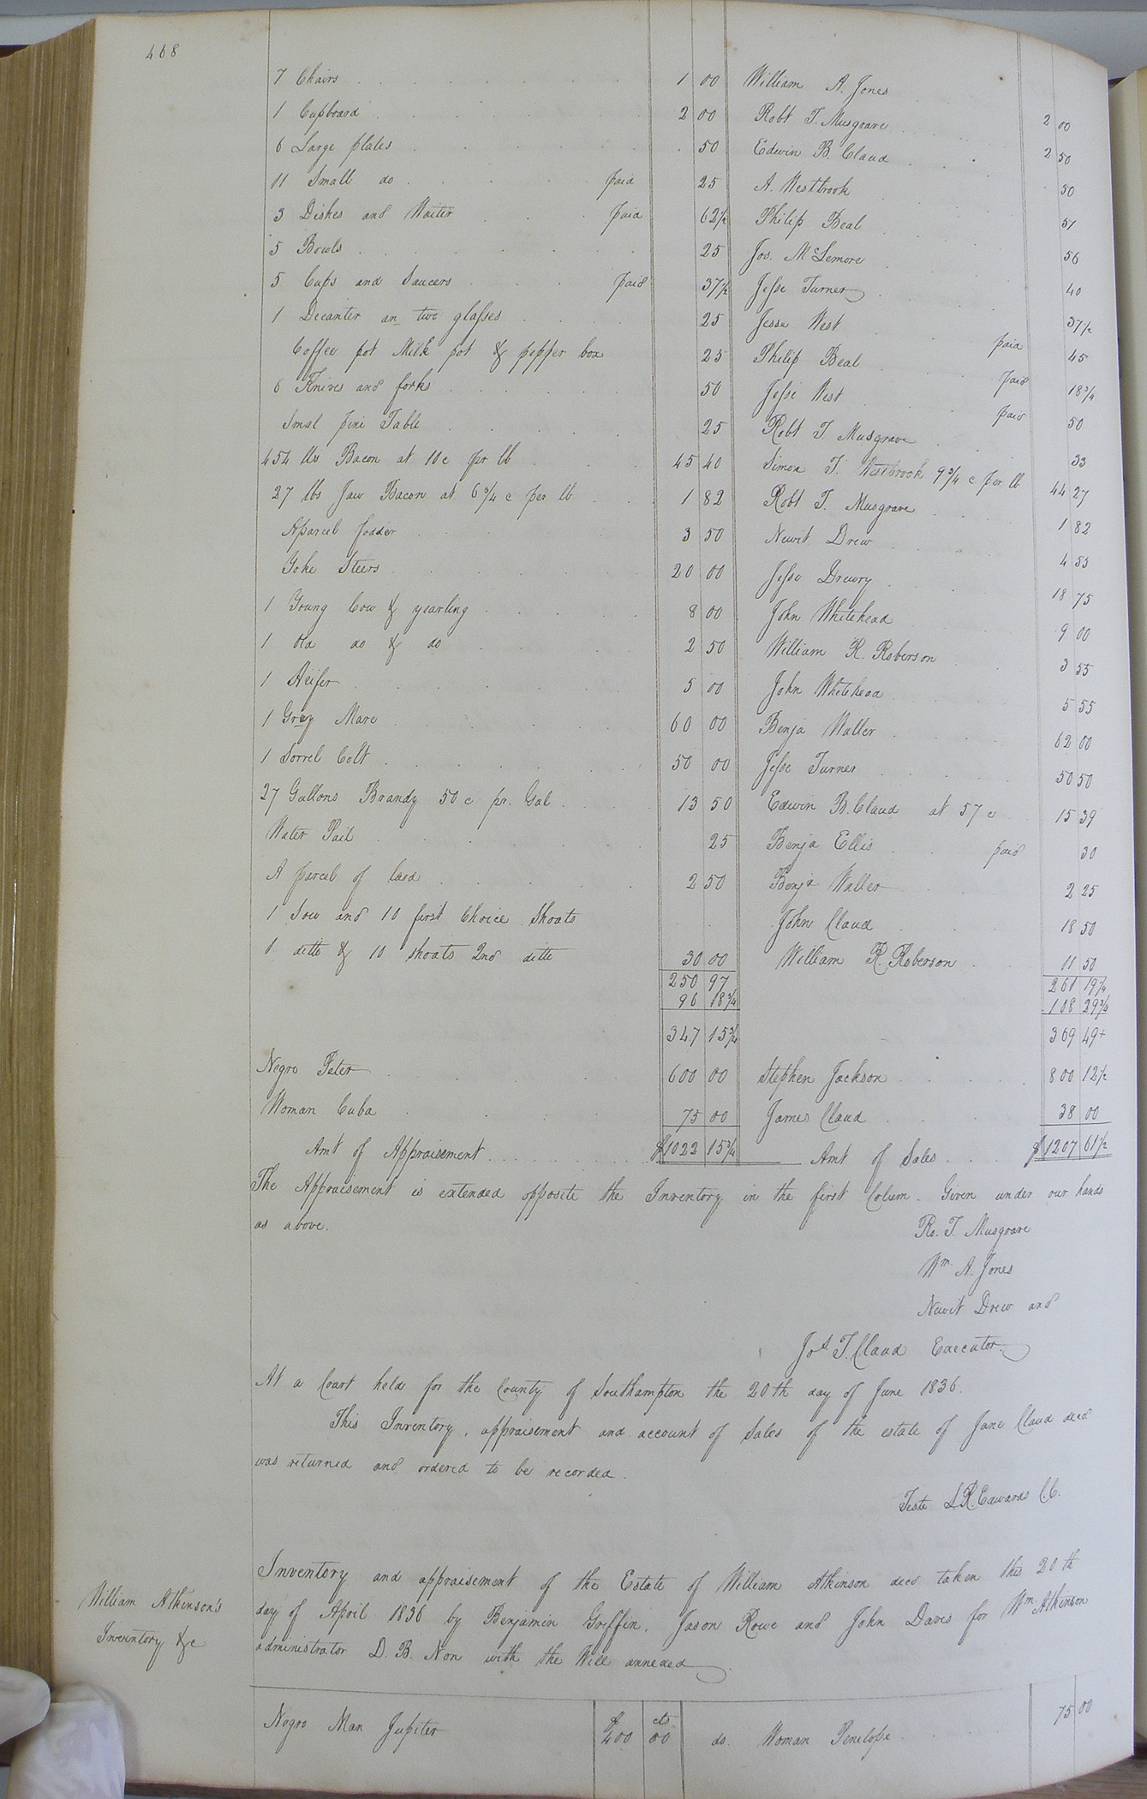 468
7 Chairs 1 00 William A. Jones 2 00
1 Cupboard 2 00 Robt T. Musgrave 2 50
6 Large plates 50 Edwin B. Claud 50
11 Small do paid 25 A. Westbrook 51
3 Dishes and Waiter paid 62 1/2 Philip Beal 56
5 Bowls 25 Jos. McLemore 40
5 Cups and Saucers paid 37 1/2 Jesse Turner 37 1/2
1 Decanter an two glasses 25 Jesse West paid 45
Coffee pot Milk pot & pepper box 25 Philip Beal paid 18 3/4
6 Knives and forks 50 Jesse West paid 50
Smal pine Table 25 Robt T Musgrave 33
454 lbs Bacon at 10c pr lb 45 40 Simon T. Westbrook 9 3/4 c per lb 44 27
27 lbs Jaw Bacon at 6 3/4 c per lb 1 82 Robt T. Musgrave 1 82
A parcel fodder 3 50 Newit Drew 4 55
Yoke Steers 20 00 Jesse Drewry 18 75
1 Young Cow & yearling 8 00 John Whitehead 9 00
1 old do & do 2 50 William R. Roberson 3 55
1 Heifer 5 00 John Whitehead 5 55
1 Grey Mare 60 00 Benja Waller 62 00
1 Sorrel Colt 50 00 Jesse Turner 50 50
27 Gallons Brandy 50 c pr. Gal 13 50 Edwin B. Claud at 57 c 15 39
Water Pail 25 Benja Ellis paid 30
A parcel of lard 2 50 Benja Waller 2 25
1 Sow and 10 first Choice Shoats John Claud 18 50
1 ditto & 10 shoats 2nd ditto 30 00 William R. Roberson 11 50
250 97 261 19 1/4
96 18 3/4 108 29 3/4
347 15 3/4 369 49+
Negro Peter 600 00 Stephen Jackson 800 12 1/2
Woman Cuba 75 00 James Claud 38 00
Amt of Appraisement $1022 15 3/4 Amt of Sales $1207 61 1/2
The Appraisement is extended opposite the Inventory in the first Colum. Given under our hands
as above.
Ro. T. Musgrave
Wm. A. Jones
Newit Drew and
Jos. T. Claud Executor
At a Court held for the County of Southampton the 20th day of June 1836.
This Inventory, appraisement and account of Sales of the estate of Jane Claud decd
was returned and ordered to be recorded.
Teste L.R. Edwards C.C.
William Atkinson's
Inventory &c
Inventory and appraisement of the Estate of William Atkinson decd taken this 20th
day of April 1836 by Benjamin Griffin, Jason Rowe and John Davis for Wm Atkinson
administrator D. B. Non with the Will annexed
Negro Man Jupiter $ 400 cts 00 do. Woman Penelope 75 00